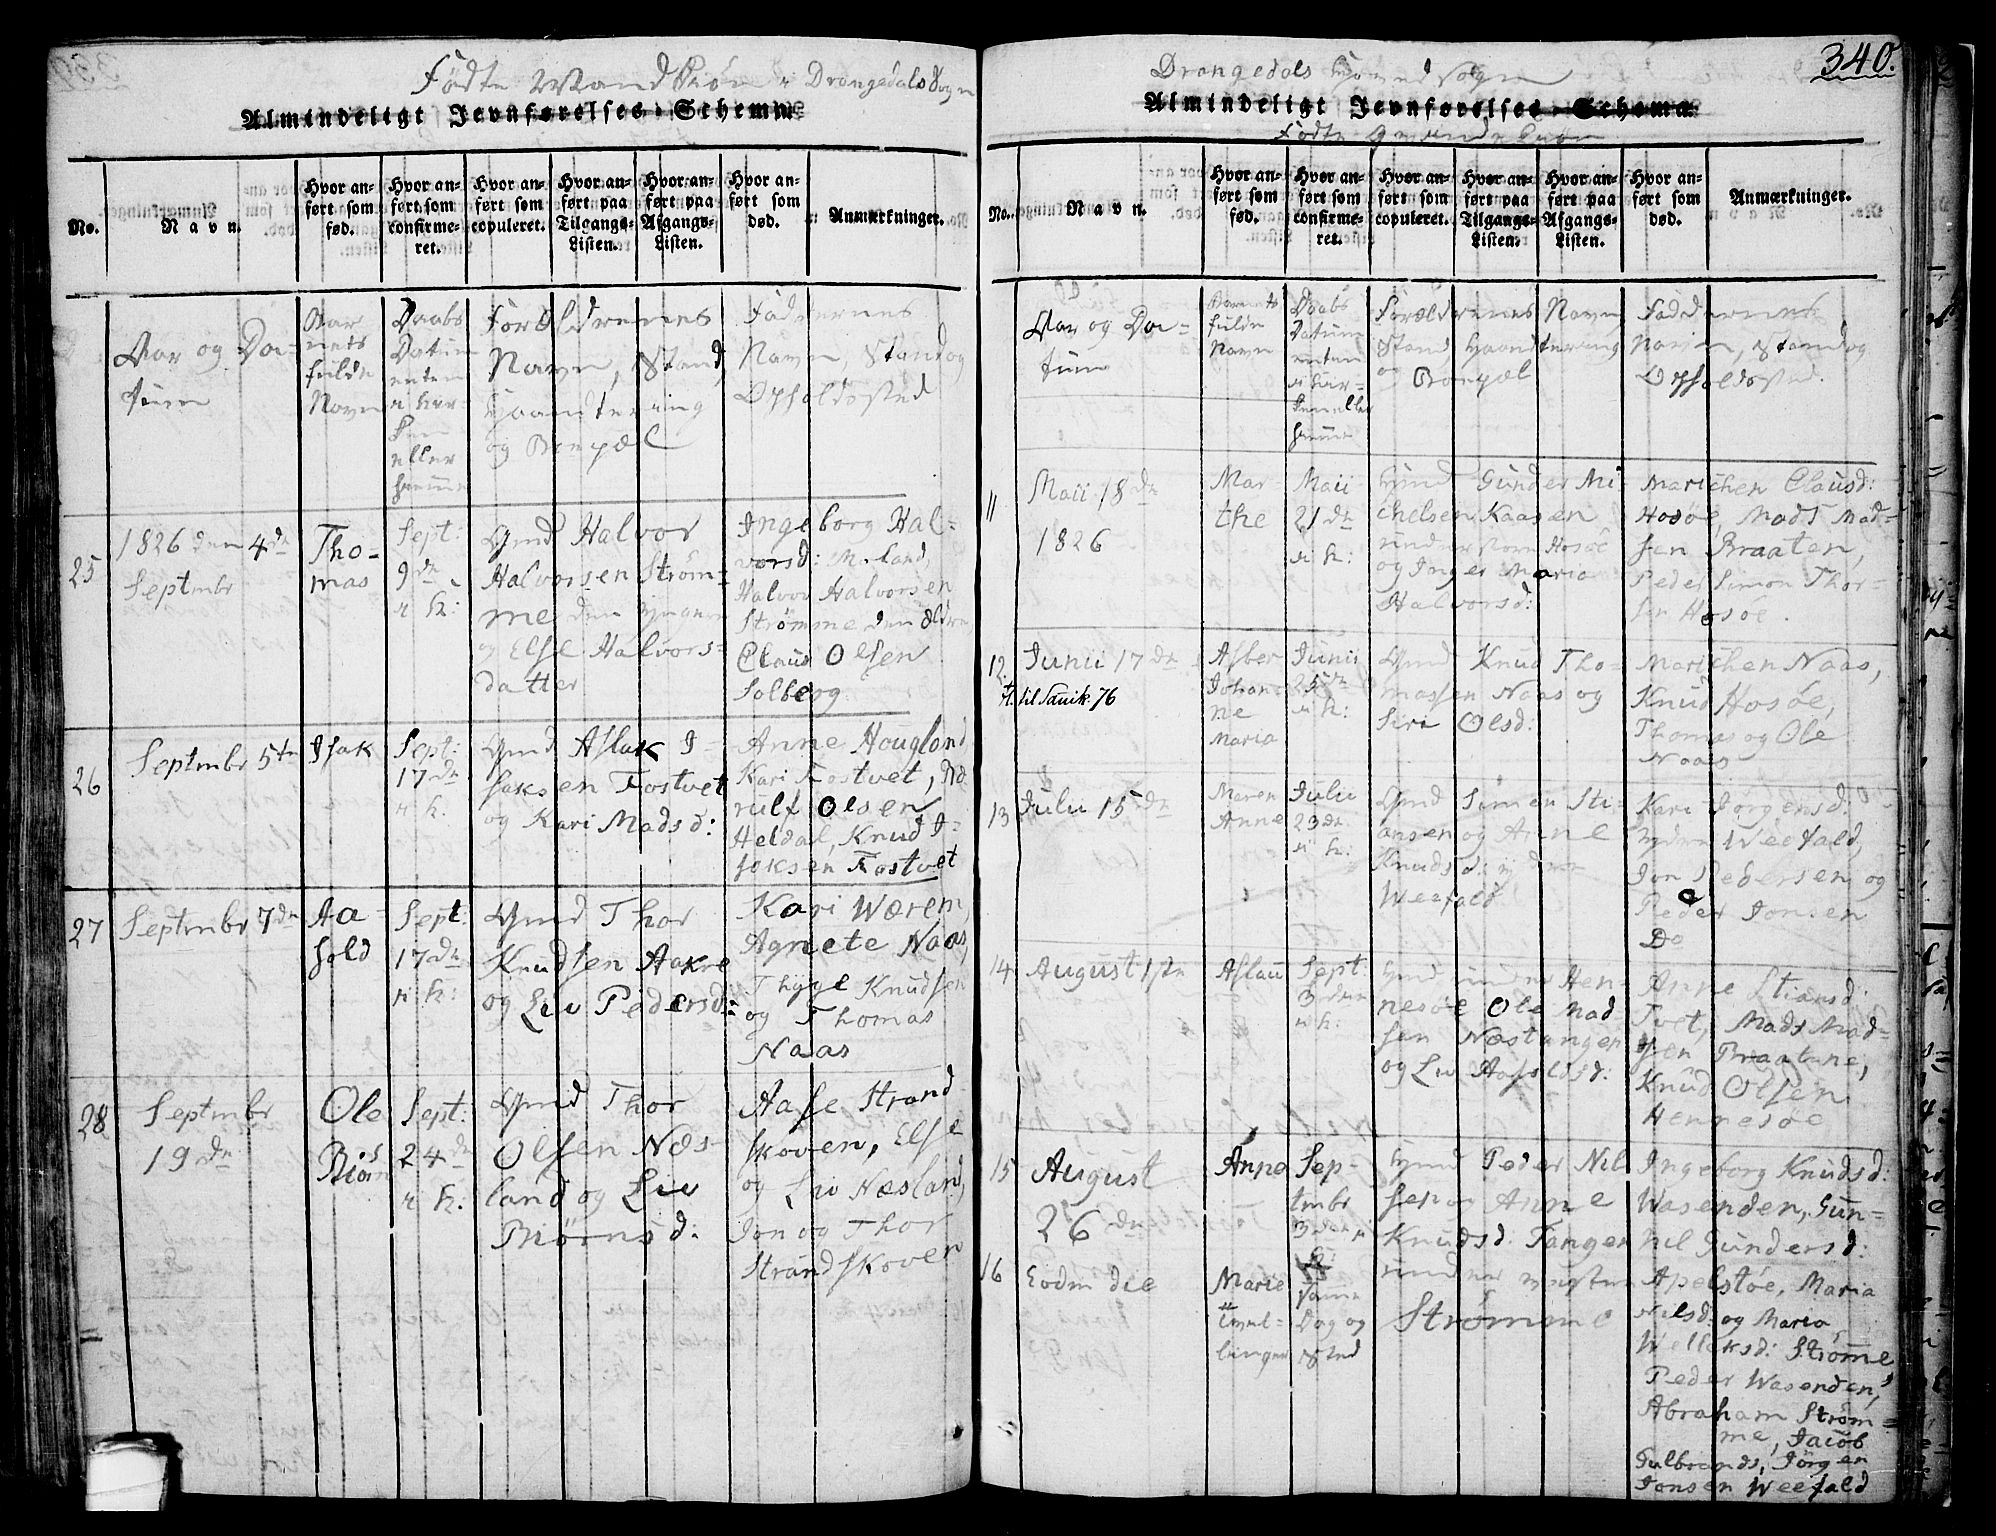 Fødte Mandkiøn i Drangedals Sogn
Almindeligt Jevnførelses-Schema
No.
Navn.
Hvor anført som fød.
Hvor anført som confirmeret.
Hvor anført som copuleret.
Hvor anført paa Tilgangs-Listen.
Hvor anført paa Afgangs-Listen.
Hvor anført som død.
Anmærkninger.
Aar og Da-
tum
Bar
nets
fulde
Navn
Daabs
Datum
enten
i Kir-
ken
eller
hiemme
Forældrenes
Navn, Stand,
Haandtering
og Boepæl
Faddernes
Navn, Stand og
Opholdssted
25
1826 den 4de
Septmbr
Tho-
mas
Sept:
9de
i K:
Gmd Halvor
Halvorsen Strøm-
me den yngere
og Else Halvors-
datter
Ingeborg Hal-
vorsd: Merland
Halvor Halvorsen
Strømme den ældre,
Claus Olsen
Solberg.
26
Septmbr 5te
Isak
Sept:
17de
i K.
Gmd Aslak I-
saksen Tostvet
og Kari Madsd:
Anne Hougland,
Kari Tostvet,
rulf Olsen
Heldal, Knud I-
saksen Tostvet
27
Septmbr 7de
Aa-
sold
Sept:
17de
i K:
Gmd Thor
Knudsen Aakre
og Liv Pedersd:
Kari Wæren,
Agnete Naas,
Thyge Knudsen
og Thomas
Naas
28
Septmbr
19de
Ole
Biørn
Sept:
24de
i K:
Gmd Thor
Olsen Næs-
land og Liv
Biørnsd:
Aase Strand
skoven, Else
og Liv Næsland,
Jon og Thor
Strandskoven
340.
Drangedals Hoved Sogn
Almindeligt Jevnførelses-Schema
Fødte Qvindekiøn
No.
Navn.
Hvor anført som fød.
Hvor anført som confirmeret.
Hvor anført som copuleret.
Hvor anført paa Tilgangs-Listen.
Hvor anført paa Afgangs-Listen.
Hvor anført som død.
Anmærkninger.
Aar og Da-
tum
Barnets
fulde
Navn
Daabs
Datum
enten
i Kir-
ken eller
hiemme
Forældrenes Navn,
Stand, Haandtering
og Boepæl
Faddernes
Navn, Stand og
Opholdssted.
11
Maii 18de
1826
Mar-
the
Maii
21de
i K:
Gmd Gunder Mi-
chelsen Kaasen
under store Hosøe
og Inger Maria
Halvorsd:
Marichen Clausd:
Hosøe, Mads Mad-
sen Braaten,
Peder Simon Thor-
sen Hosøe.
12.
Junii 17de
til Sanik. 76
Asber
Johan
ne
Maria
Junii
25de
i K:
Gmd Knud Tho-
massen Naas og
Siri Olsd:
Marichen Naas,
Knud Hosøe,
Thomas og Ole
Naas
13
Julii 15de
Maren
Anne
Julii
23de
i K:
Gmd Simen Sti-
ansen og Anne
Knudsd: ydre
Weefald
Kari Jørgensd:
ydre Weefald,
Jon Pedersen og
Peder Jonsen
Do
14
August 1ste
Aslau
Sept:
3die
i K:
Gmd under Hen-
nesøe Ole Mad
sen Næstangen
og Liv Aasoldsd:
Anne Stiansd:
Tvet, Mads Mad-
sen Braatene,
Knud Olsen
Hennesøe
15
August
26de
Anne
Sep-
tmbr
3die i
K:
Gmd Peder Nil
sen og Anne
Knudsd: Tangen
under
Strømme
Ingeborg Knudsd:
Wasenden, Gun-
hil Gundersd:
16
Eodm die
Marie
tvil-
linger
samme
Dag og
Sted
Apelstøe, Maria
Nilsd: og Maria
Wetleksd: Strømme
Peder Wasenden,
Abraham Strøm-
me, Jacob
Gulbrands, Jørgen
Jonsen Weefald